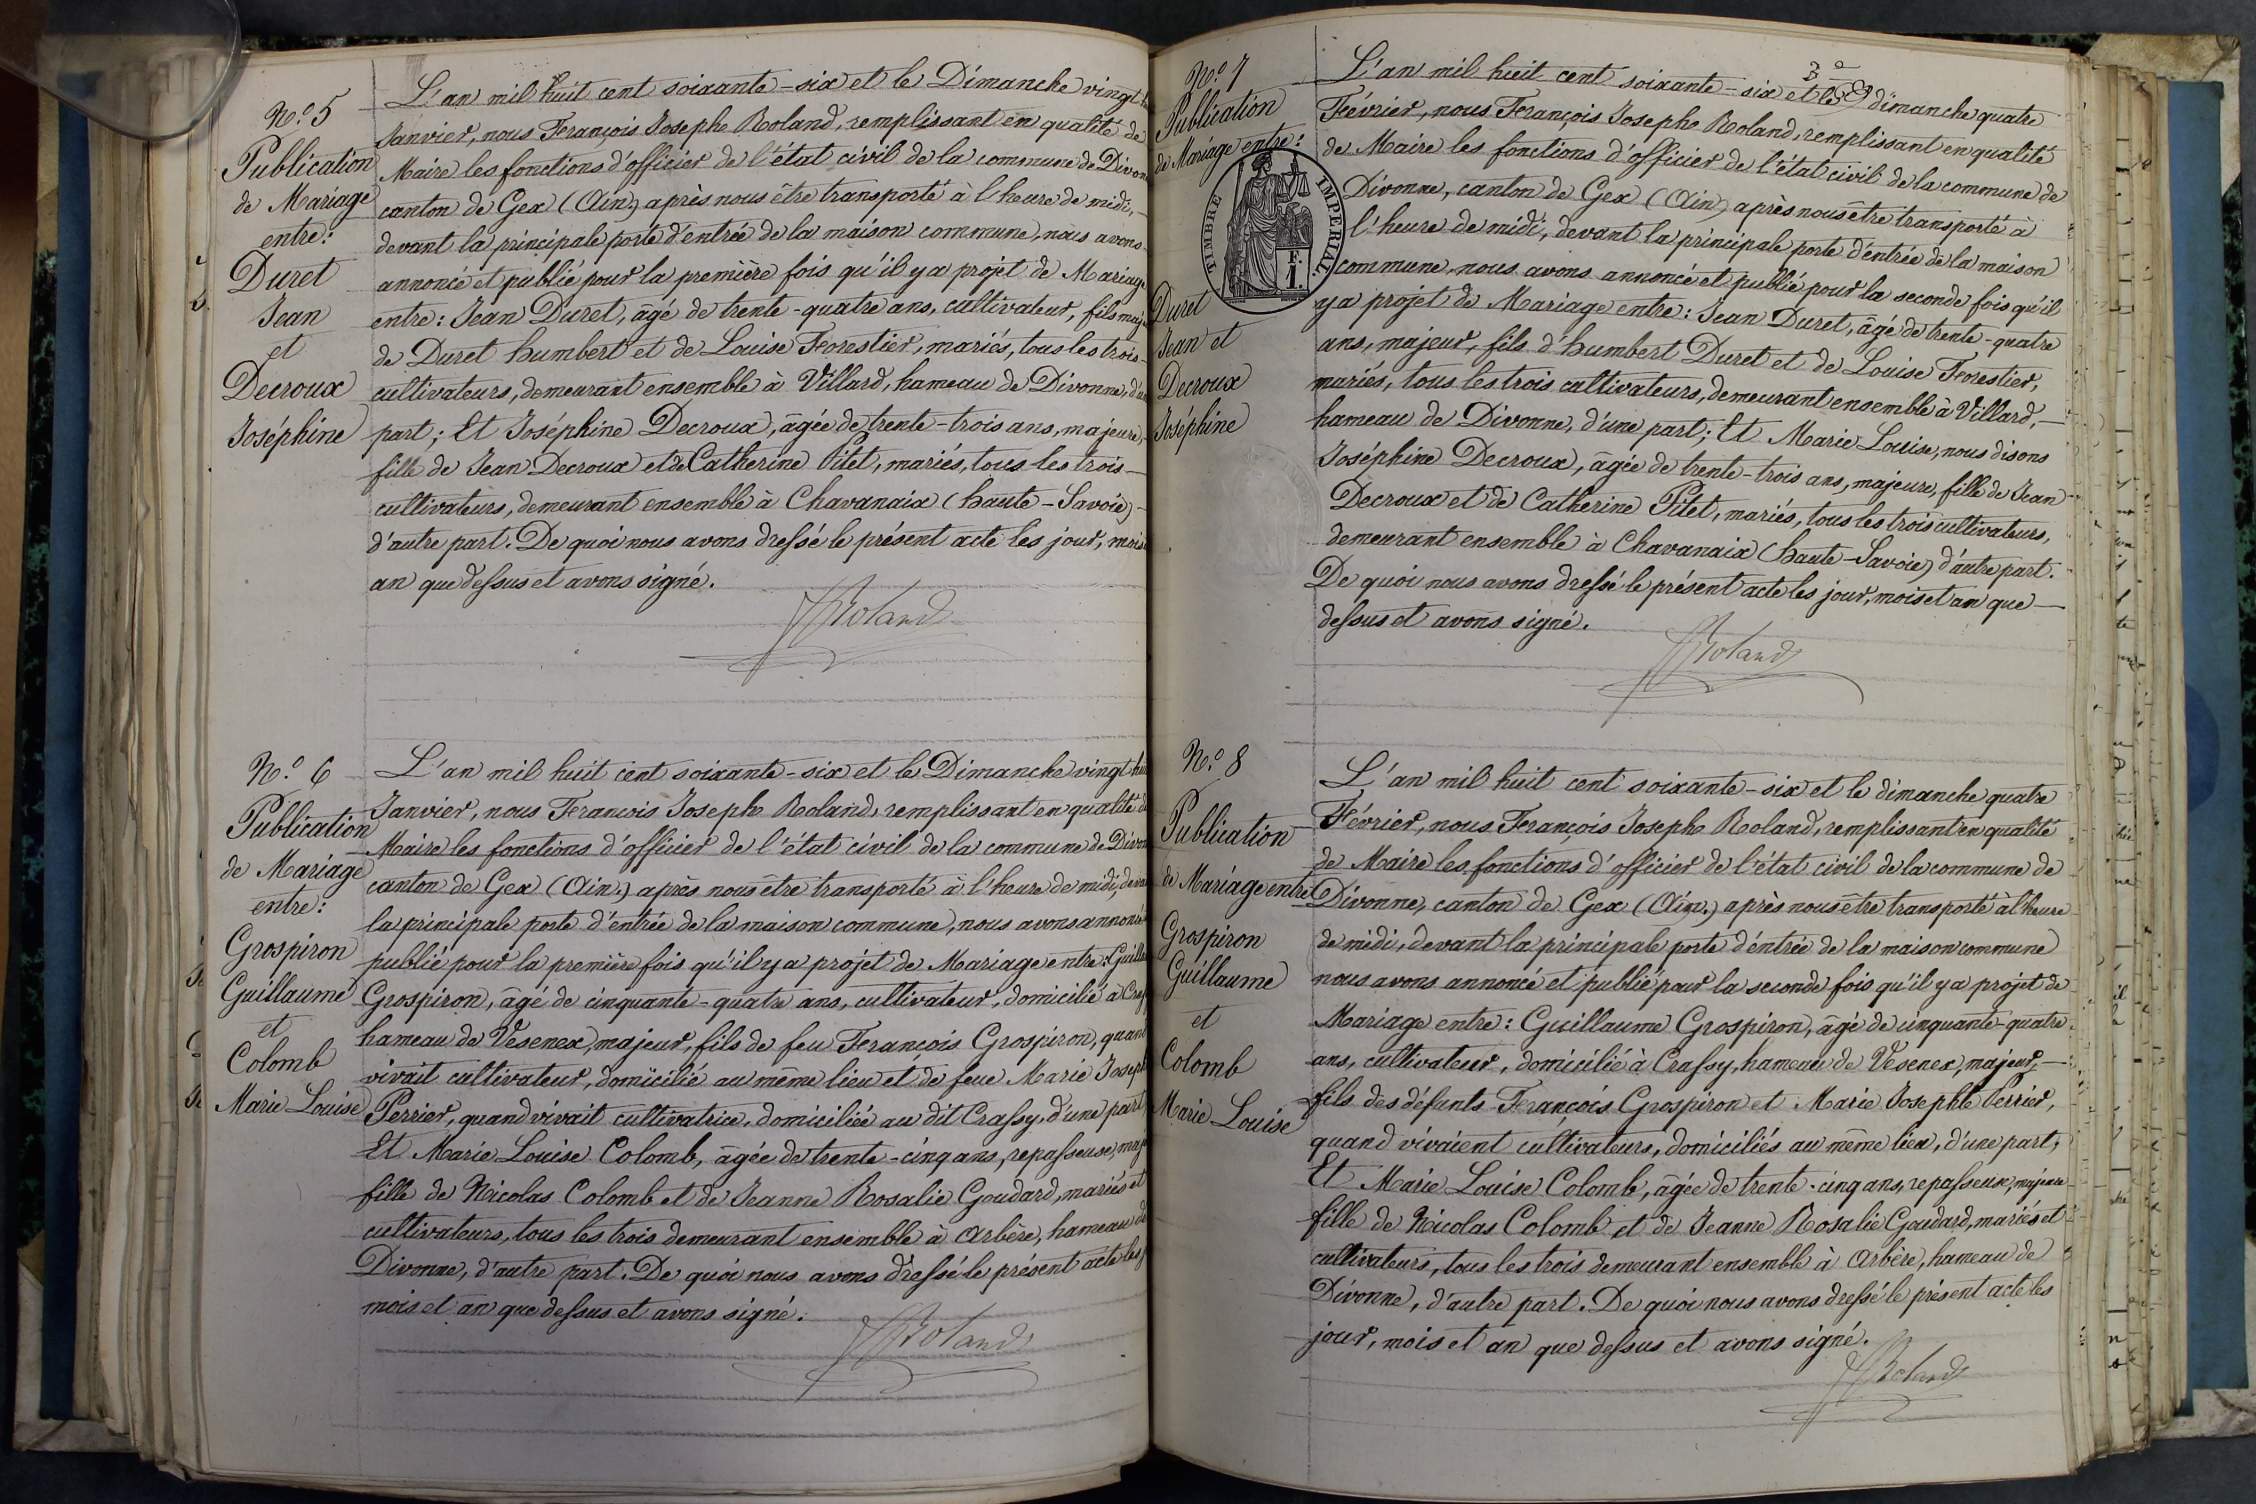 N.o 5
Publication
de Mariage
entre:
Duret
Jean
et
Decroux
Joséphine
L'an mil huit cent soixante-six et le Dimanche vingt
Janvier, nous François Joseph Roland, remplissant en qualité de
Maire les fonctions d'officier de l'état civil de la commune de Divon
canton de Gex (Ain) après nous être transporté à l'heure de midi,
devant la principale porte d'entrée de la maison commune, nous avons
annoncé et publié pour la première fois qu'il y a projet de Mariage
entre: Jean Duret, âgé de trente-quatre ans, cultivateur, fils maj
de Duret humbert et de Louise Forestier, mariés, tous les trois
cultivateurs, demeurant ensemble à Villard, hameau de Divonne, d'u
part; Et Joséphine Decroux, âgée de trente-trois ans, majeure,
fille de Jean Decroux et de Catherine Pitet, mariés, tous les trois
cultivateurs, demeurant ensemble à Chavanaix (haute-Savoie)
d'autre part. De quoi nous avons dressé le présent acte les jour, mois
an que dessus et avons signé.
JRoland
N.o 6
Publication
de Mariage
entre:
Grospiron
Guillaume
et
Colomb
Marie Louise
L'an mil huit cent soixante-six et le Dimanche vingt hui
Janvier, nous François Joseph Roland, remplissant en qualité d
Maire les fonctions d'officier de l'état civil de la commune de Divon
canton de Gex (Ain.) après nous être transporté à l'heure de midi, deva
la principale porte d'entrée de la maison commune, nous avons annoncé
publié pour la première fois qu'il y a projet de Mariage entre: Guilla
Grospiron, âgé de cinquante-quatre ans, cultivateur, domicilié à Cras
hameau de Vesenex, majeur, fils de feu François Grospiron, quand
vivait cultivateur, domicilié au même lieu et de feue Marie Joseph
Perrier, quand vivait cultivatrice, domiciliée au dit Crassy, d'une part
Et Marie Louise Colomb, âgée de trente-cinq ans, repasseuse, maj
fille de Nicolas Colomb et de Jeanne Rosalie Goudard, mariés et
cultivateurs, tous les trois demeurant ensemble à Arbère, hameau de
Divonne, d'autre part. De quoi nous avons dressé le présent acte les j
mois et an que dessus et avons signé.
JRoland
N.o 7
Publication
de Mariage entre:
TIMBRE IMPERIAL
F.
1.
Duret
Jean et
Decroux
Joséphine
L'an mil huit cent soixante-six et le dimanche quatre
Février, nous François Joseph Roland, remplissant en qualité
de Maire les fonctions d'officier de l'état civil de la commune de
Divonne, canton de Gex (Ain) après nous être transporté à
l'heure de midi, devant la principale porte d'entrée de la maison
commune, nous avons annoncé et publié pour la seconde fois qu'il
y a projet de Mariage entre: Jean Duret, âgé de trente-quatre
ans, majeur, fils d'humbert Duret et de Louise Forestier,
mariés, tous les trois cultivateurs, demeurant ensemble à Villard,
hameau de Divonne, d'une part; Et Marie Louise, nous disons
Joséphine Decroux, âgée de trente-trois ans, majeure, fille de Jean
Decroux et de Catherine Pitet, mariés, tous les trois cultivateurs,
demeurant ensemble à Chavanaix (haute-Savoie) d'autre part.
De quoi nous avons dressé le présent acte les jour, mois et an que
dessus et avons signé.
JRoland
N.o 8
Publication
de Mariage entre
Grospiron
Guillaume
et
Colomb
Marie Louise
L'an mil huit cent soixante-six et le dimanche quatre
Février, nous François Joseph Roland, remplissant en qualité
de Maire les fonctions d'officier de l'état civil de la commune de
Divonne, canton de Gex (Ain.) après nous être transporté à l'heure
de midi, devant la principale porte d'entrée de la maison commune
nous avons annoncé et publié pour la seconde fois qu'il y a projet de
Mariage entre: Guillaume Grospiron, âgé de cinquante-quatre
ans, cultivateur, domicilié à Crassy, hameau de Vesenex, majeur,
fils des défunts François Grospiron et Marie Josephte Perrier,
quand vivaient cultivateurs, domiciliés au même lieu, d'une part,
Et Marie Louise Colomb, âgée de trente-cinq ans, repasseuse, majeure
fille de Nicolas Colomb et de Jeanne Rosalie Goudard, mariés et
cultivateurs, tous les trois demeurant ensemble à Arbère, hameau de
Divonne, d'autre part. De quoi nous avons dressé le présent acte les
jour, mois et an que dessus et avons signé.
JRoland